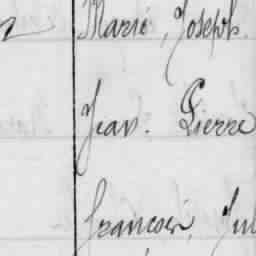 Marie, Joseph
Jean. Pierre
François, Jul